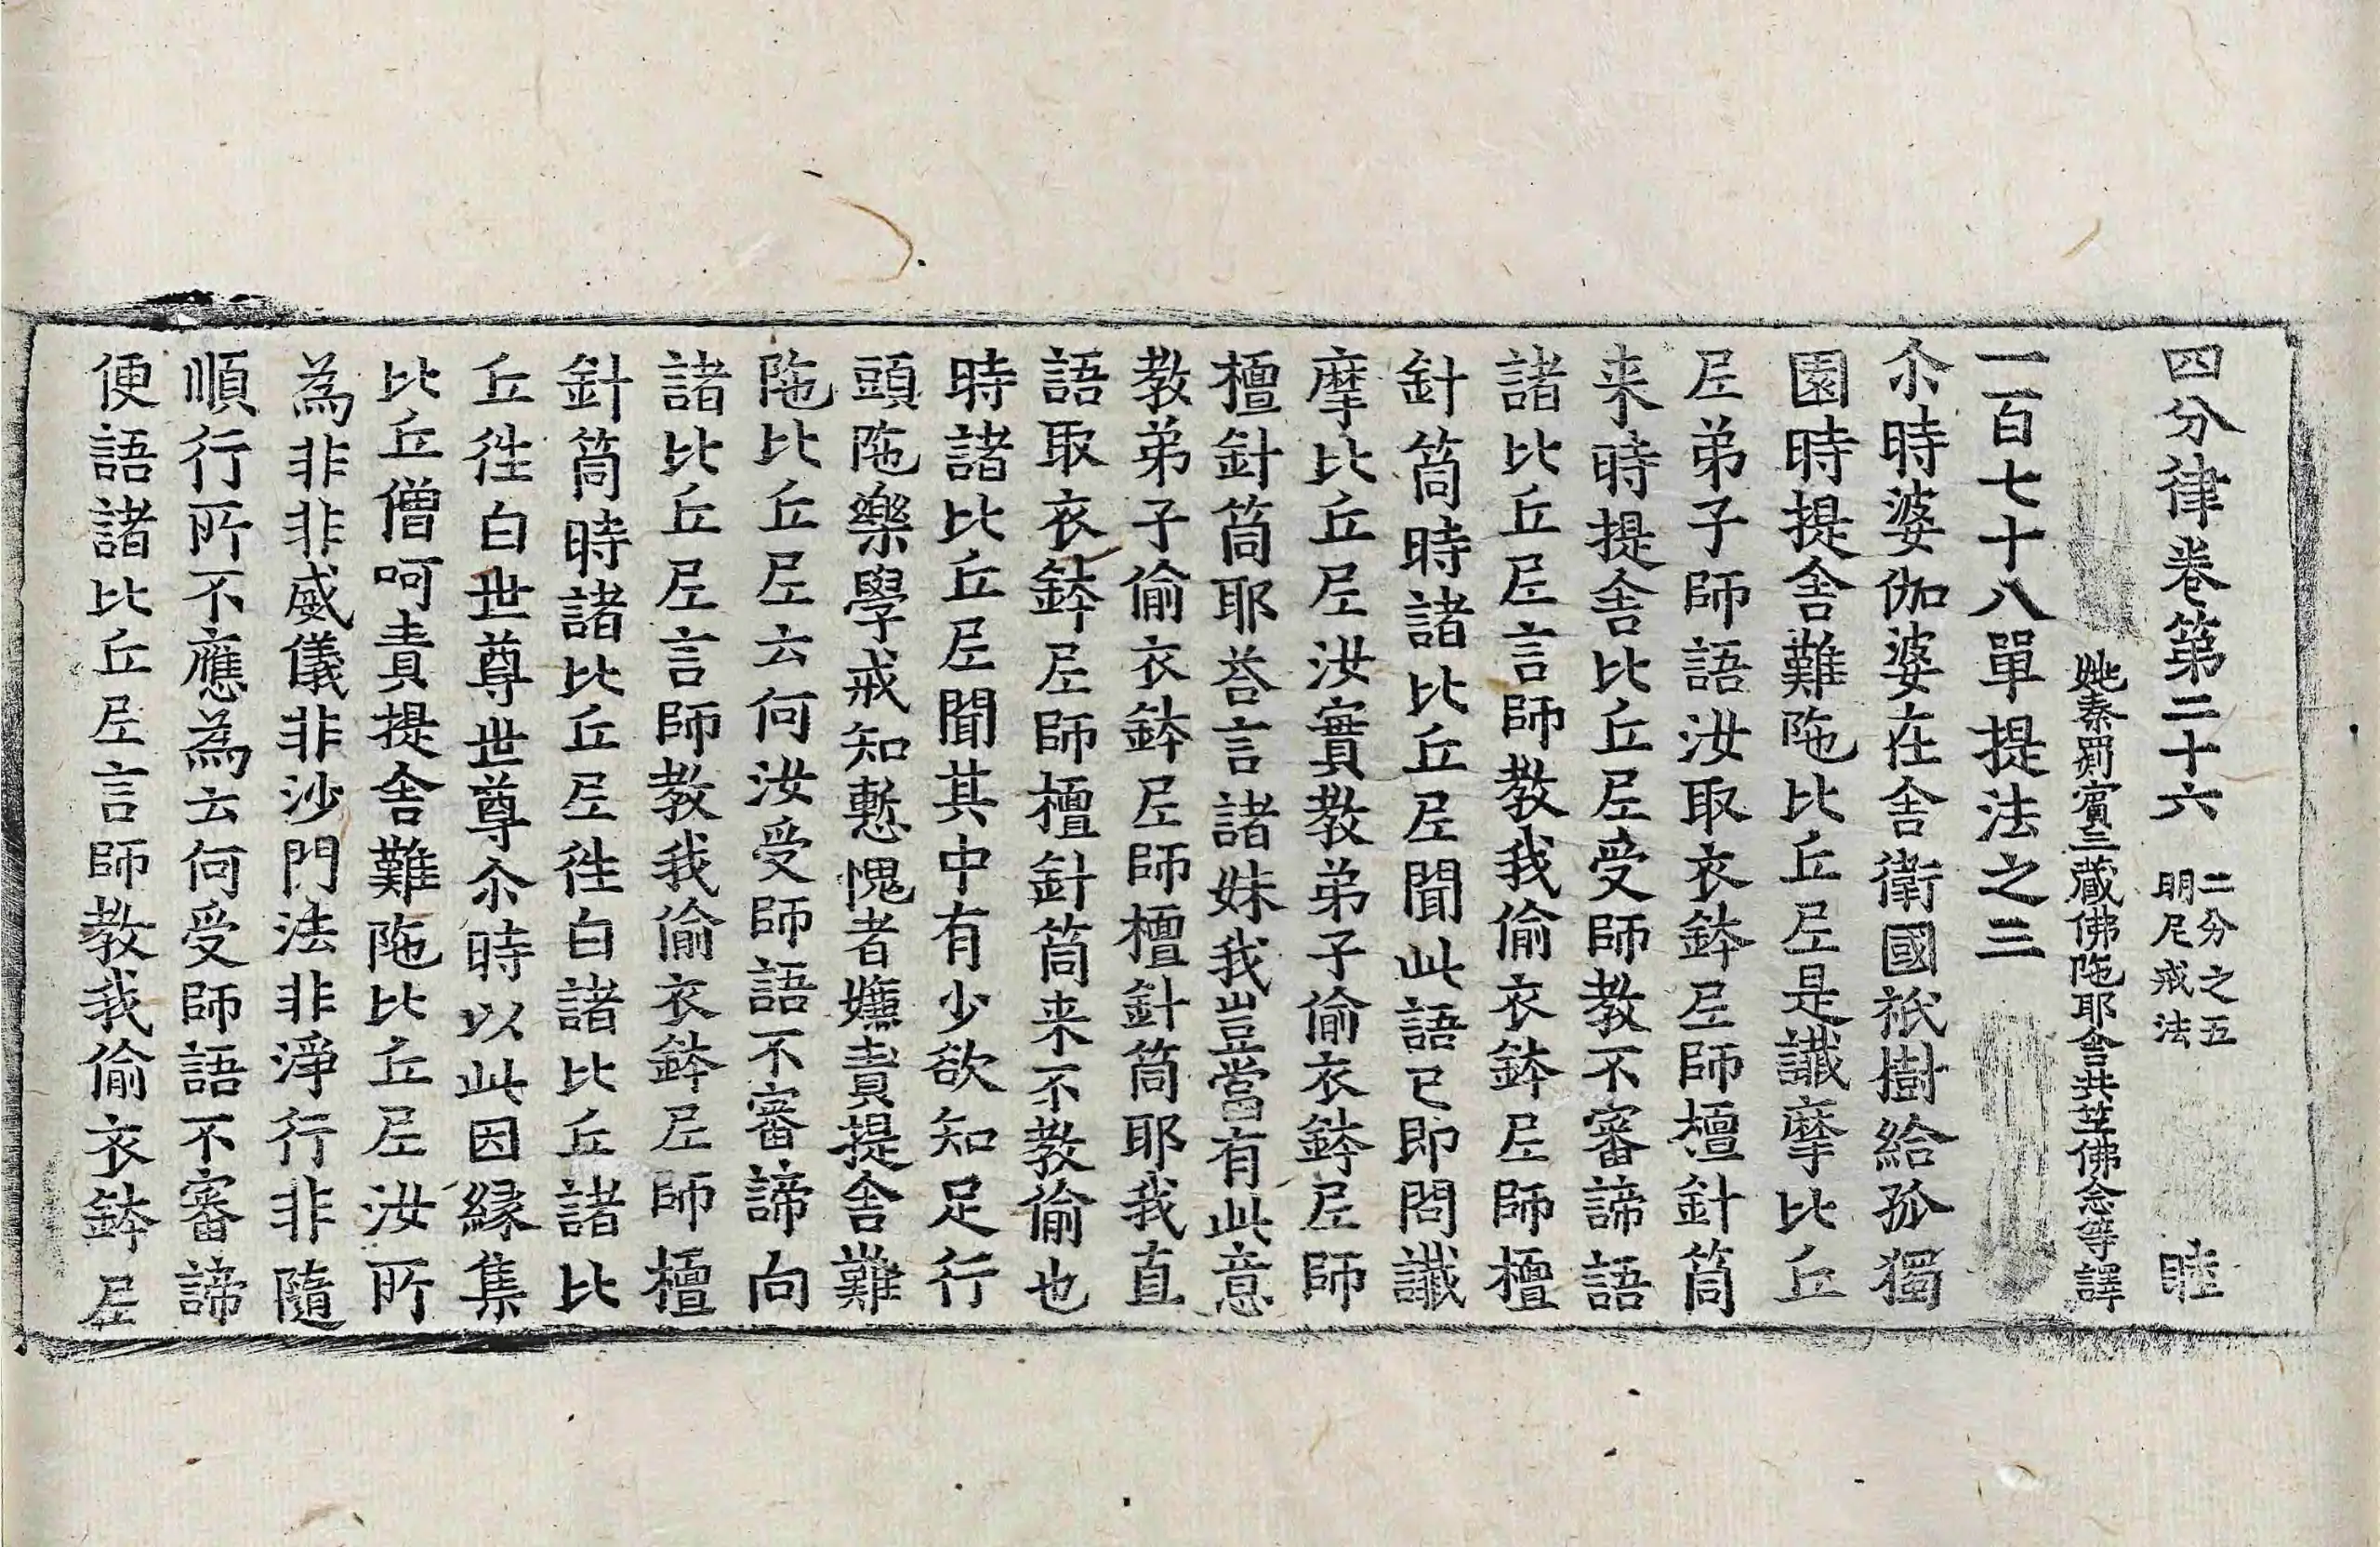 四分律卷第二十六 二分之五 明尼戒法 睦
姚秦罽賓三藏佛陁耶舎共笁佛念等譯
一百七十八單提法之三
尒時婆伽婆在舎衛國祇樹給孤獨
園時提舎難陁比丘尼是讖摩比丘
尼弟子師語汝取衣鉢尼師檀針筒
来時提舎比丘尼受師教不審諦語
諸比丘尼言師教我偷衣鉢尼師檀
針筒時諸比丘尼聞此語已即問讖
摩比丘尼汝實教弟子偷衣鉢尼師
檀針筒耶荅言諸妹我豈當有此意
教弟子偷衣鉢尼師檀針筒耶我直
語取衣鉢尼師檀針筒来不教偷也
時諸比丘尼聞其中有少欲知足行
頭陁樂學戒知慙愧者嫌責提舎難
陁比丘尼云何汝受師語不審諦向
諸比丘尼言師教我偷衣鉢尼師檀
針筒時諸比丘尼徃白諸比丘諸比
丘徃白世尊世尊尒時以此因緣集
比丘僧呵責提舎難陁比丘尼汝所
為非非威儀非沙門法非淨行非隨
順行所不應為云何受師語不審諦
便語諸比丘尼言師教我偷衣鉢尼